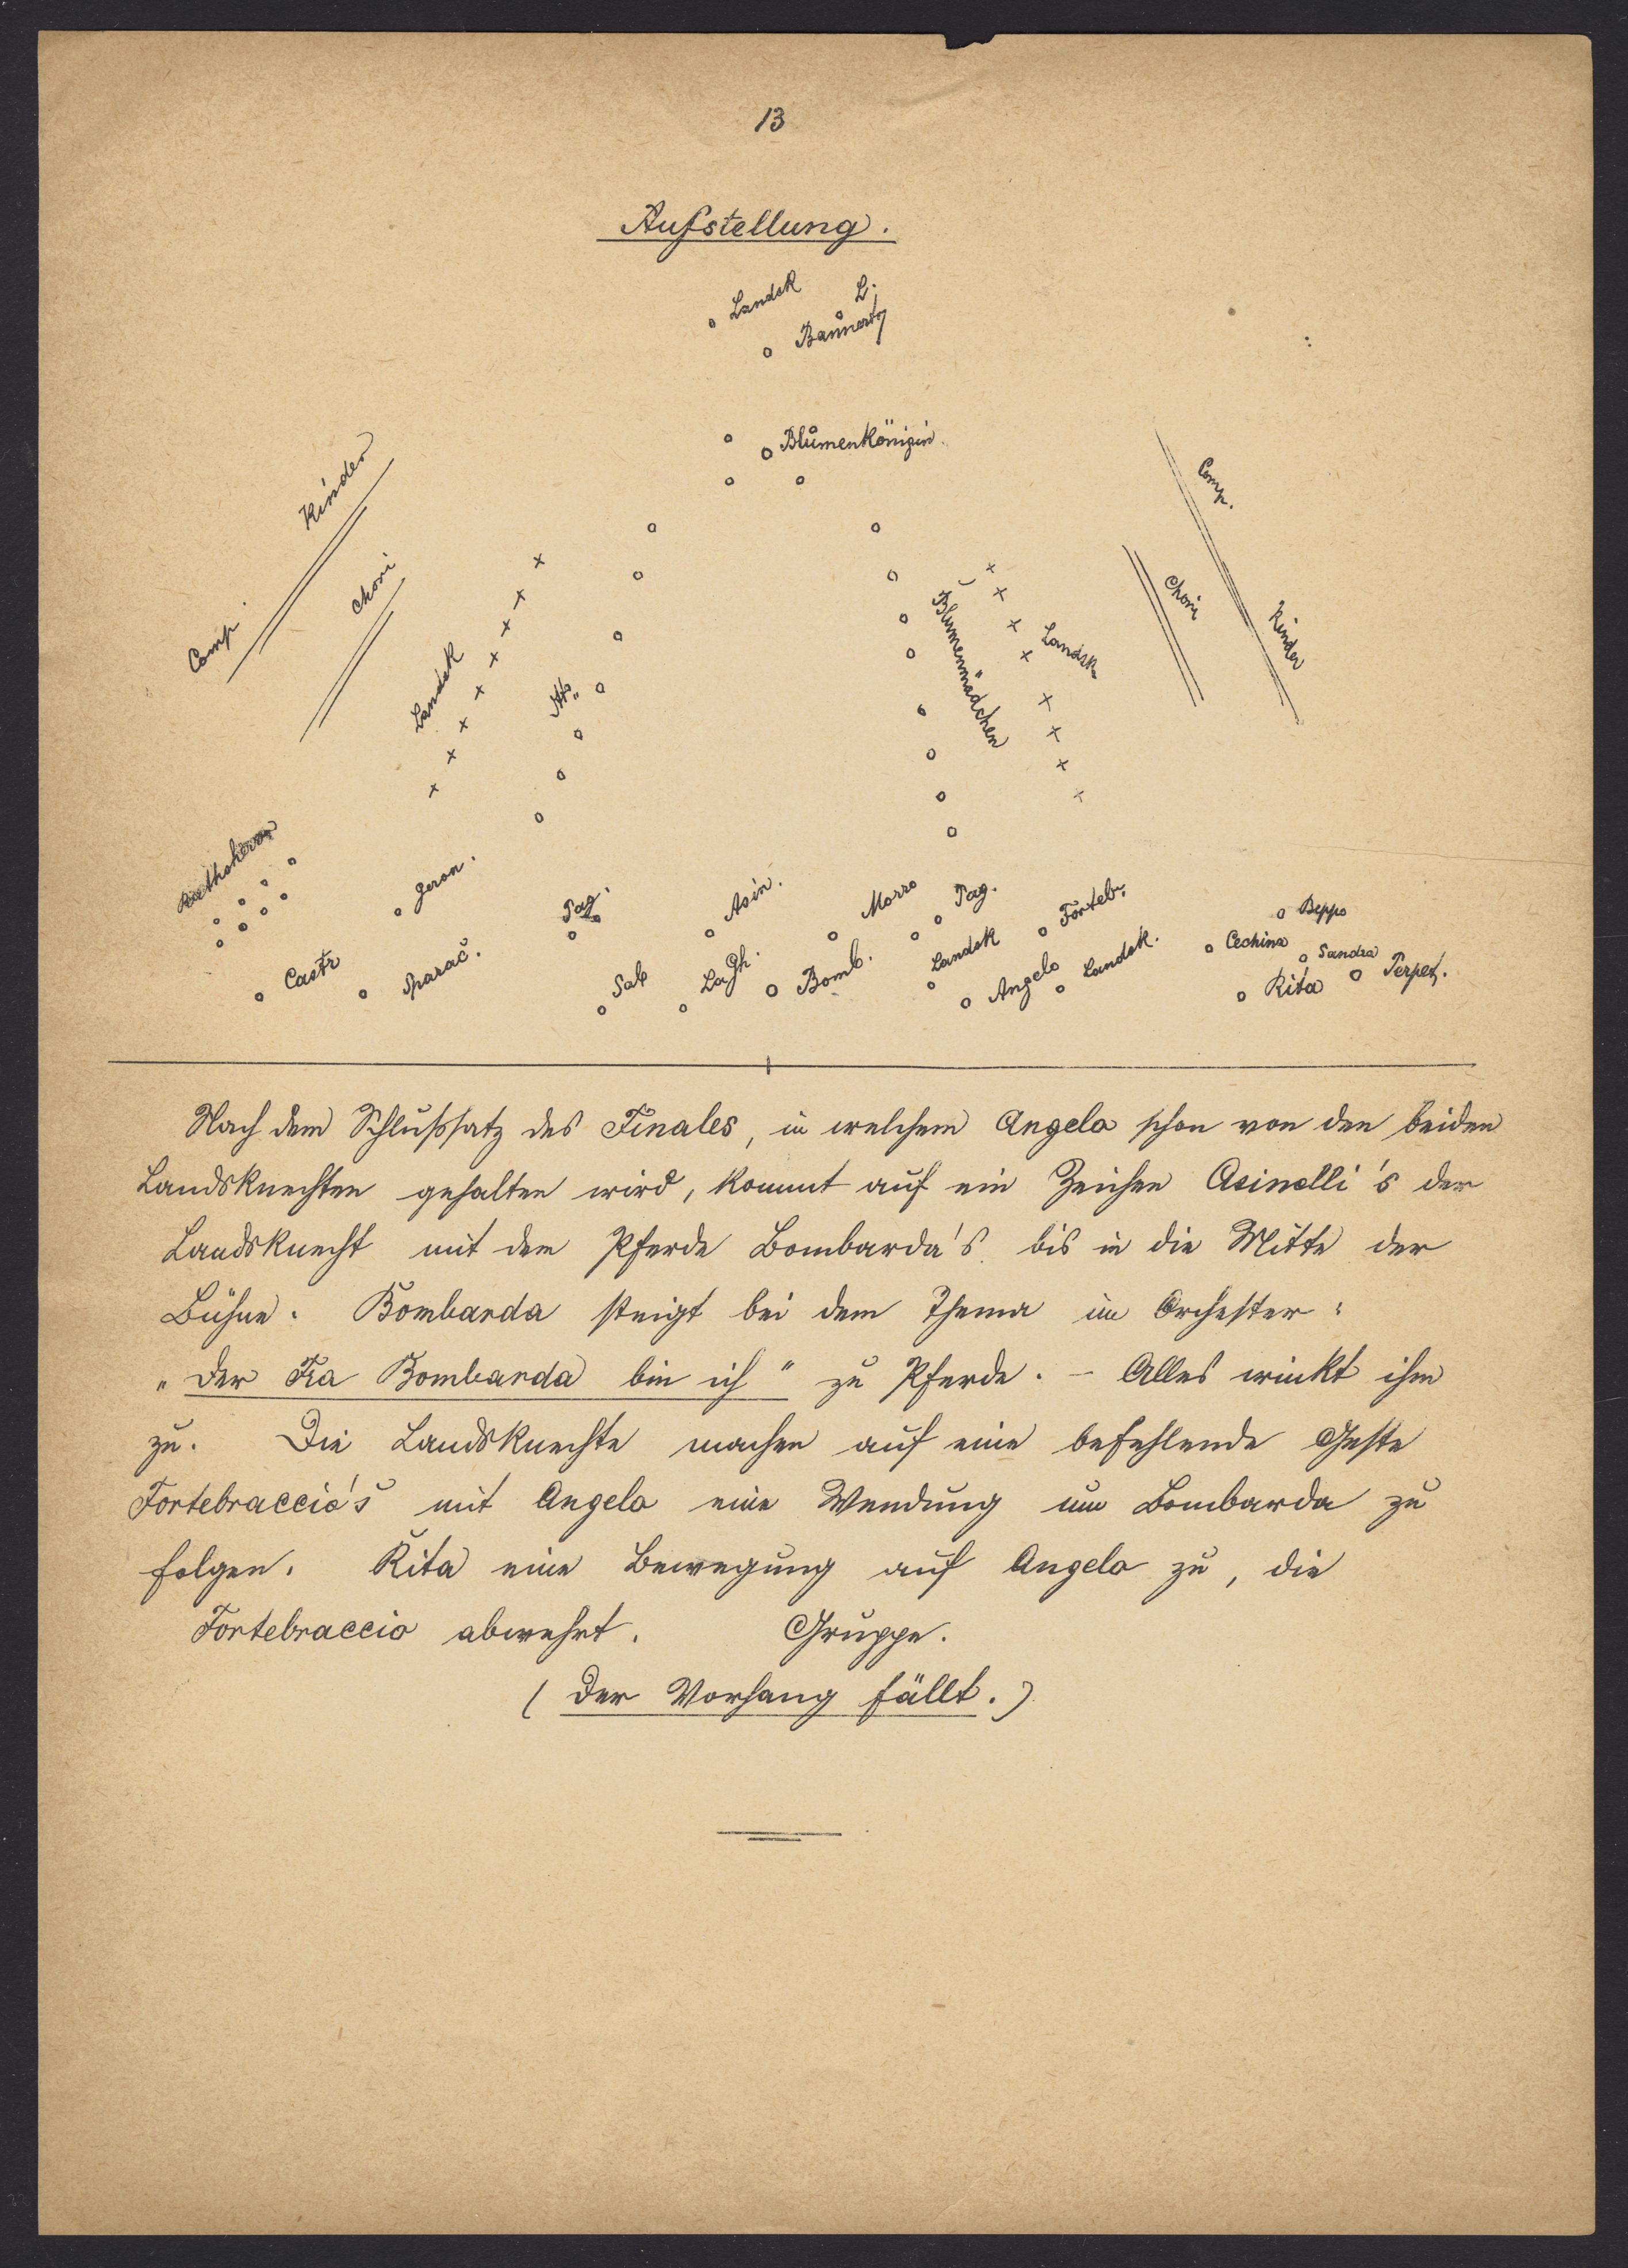 13
Aufstellung.
Landsk L.
Bannertr
Blumenkönigin.
Kinder Comp.
Chori Chori
Comp. Landsk Blumenmädchen Landsk. Kinder
Rathsherrn Geron. Pag. Asin. Morro Pag. Forteb. Beppo
Castr Sparac. Landsk Landsk. Cechina Sandra
Sab Lagh. Bomb. Angelo Rita Perpet.
Nach dem Schlußsatz des Finales, in welchem Angelo schon von den beiden
Landsknechten gehalten wird, kommt auf ein Zeichen Asinelli's der
Landsknecht mit dem Pferde Bombarda's bis in die Mitte der
Bühne. Bombarda steigt bei dem Thema im Orchester:
„Der Fra Bombarda bin ich" zu Pferde. - Alles winkt ihm
zu. Die Landsknechte machen auf eine befehlende Geste
Fortebraccio's mit Angelo eine Wendung um Bombarda zu
folgen. Rita eine Bewegung auf Angelo zu, die
Fortebraccio abwehrt. Gruppe.
(Der Vorhang fällt.)